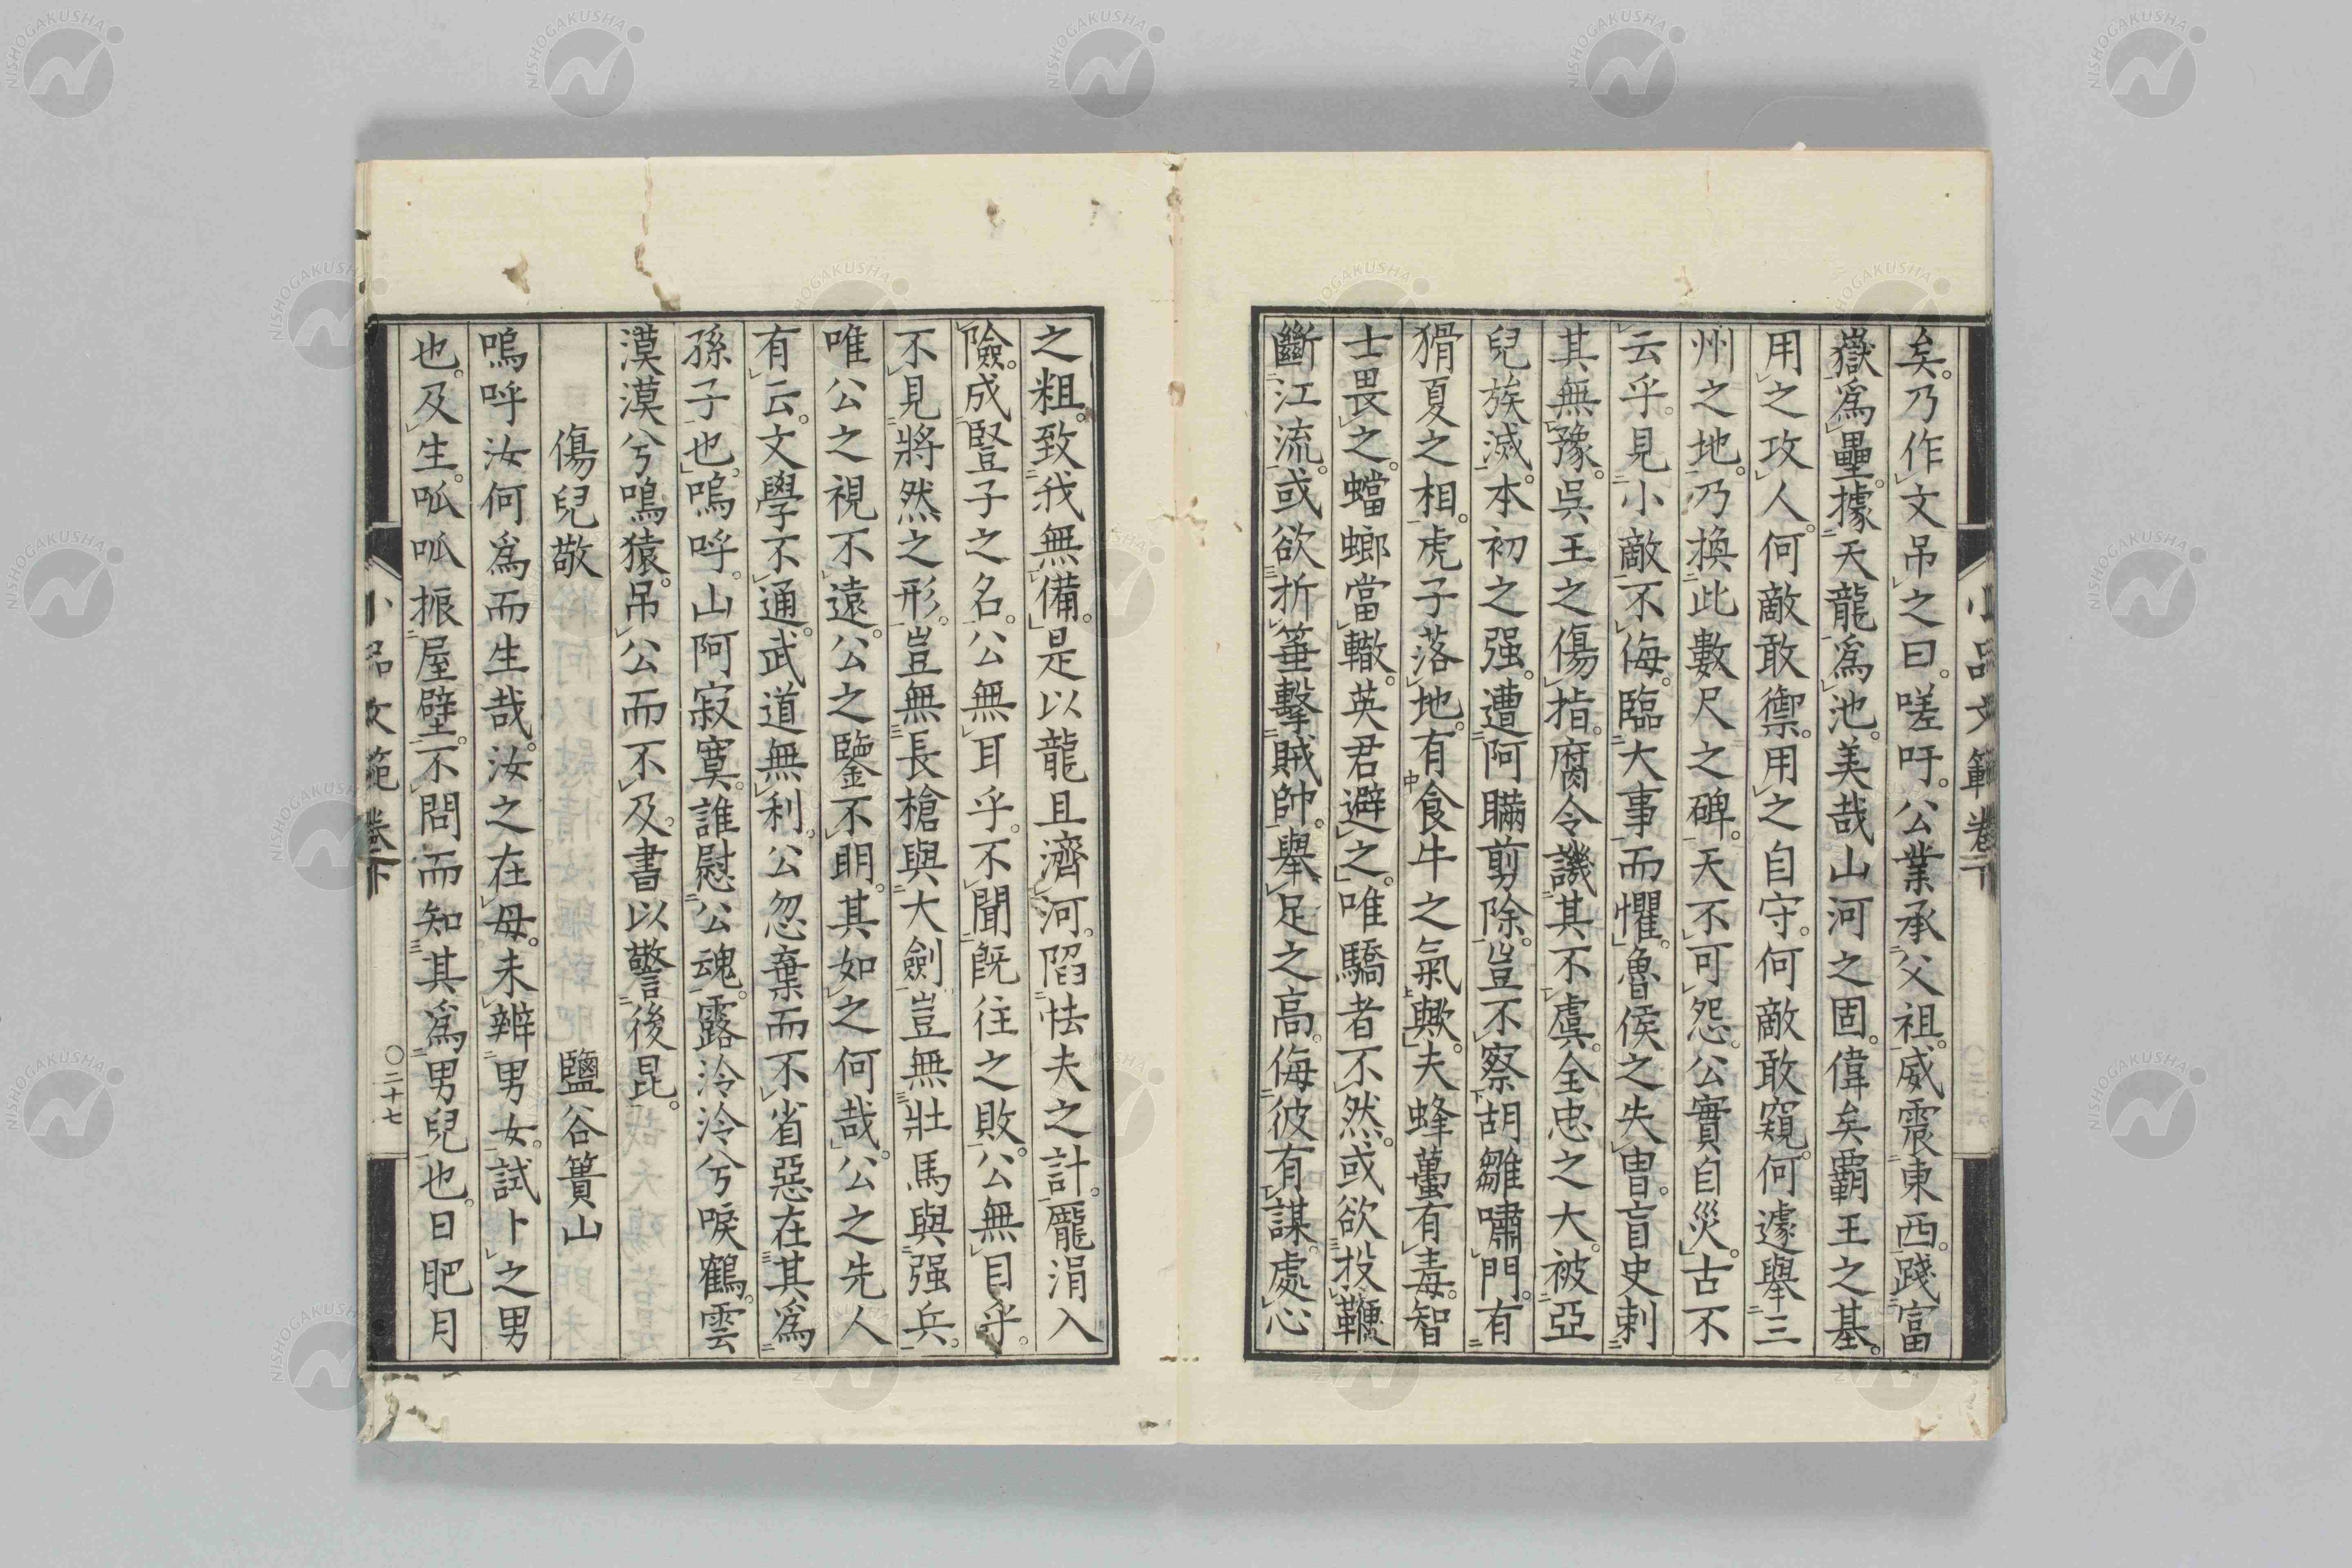 矣。乃作文吊之曰。嗟吁。公業承父祖。威震東西。踐富
嶽爲壘。據天龍爲池。美哉山河之固。偉矣霸王之基。
用之攻人。何敵敢禦。用之自守。何敵敢窺。何遽舉三
州之地。乃換此數尺之碑。天不可怨。公實自災。古不
云乎。見小敵不侮。臨大事而懼。魯侯之失冑。盲史刺
其無豫。吳王之傷指。腐令譏其不虞。全忠之大。被亞
兒族滅。本初之强。遭阿瞞剪除。豈不察胡雛嘯門。有
猾夏之相。虎子落地。有食牛之氣歟。夫蜂蠆有毒。智
士畏之。蟷螂當轍。英君避之。唯驕者不然。或欲投鞭
斷江流。或欲折箠擊賊帥。舉足之高。侮彼有謀。處心
之粗。致我無備。是以龍且濟河。陷怯夫之計。龐涓入
險。成豎子之名。公無耳乎。不聞既往之敗。公無目乎。
不見將然之形。豈無長槍與大劍。豈無壯馬與强兵。
唯公之視不遠。公之鑒不明。其如之何哉。公之先人
有云。文學不通。武道無利。公忽棄而不省。惡在其爲
孫子也。嗚呼。山阿寂寞。誰慰公魂。露泠泠兮唳鶴。雲
漠漠兮鳴猿。吊公而不及。書以警後昆。
傷兒敬 鹽谷簣山
嗚呼汝何爲而生哉。汝之在母。未辨男女。試卜之男
也。及生。呱呱振屋壁。不問而知其爲男兒也。日肥月
小品文範卷下
小品文範卷下 〇二十七
NISHOGAKUSHA